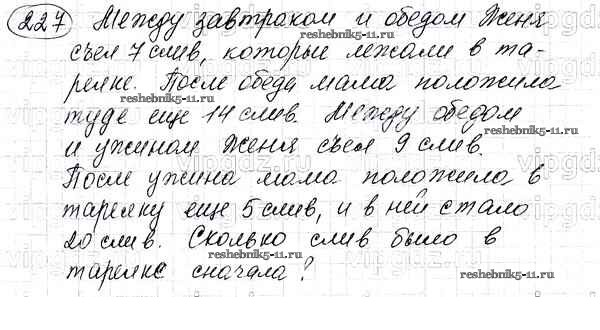 227 Между завтраком и обедом Женя
reshebnik5-11.ru
съел 7 слив, которые лежали в та-
релке. После обеда мама положила
reshebnik5-11.ru
туда еще 14 слив. Между обедом
reshebnik5-11.ru
и ужином Женя съел 9 слив.
После ужина мама положила в
тарелку еще 5 слив, и в ней стало
reshebnik5-11.ru
20 слив. Сколько слив было в
тарелке сначала?
reshebnik5-11.ru